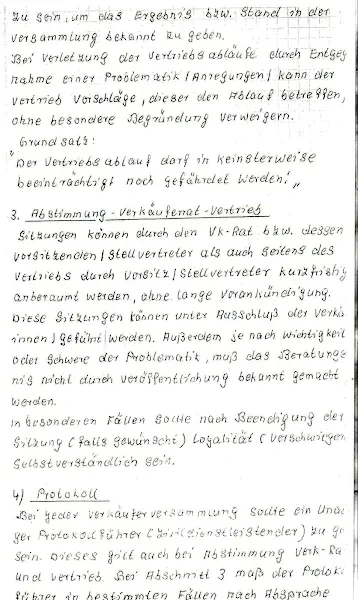 zu sein, um das Ergebnis bzw. Stand in der
Versammlung bekannt zu geben.
Bei Verletzung der Vertriebsabläufe durch Entgeg
nahme einer Problematik / Anregungen / kann der
Vertrieb Vorschläge, dieser den Ablauf betreffen,
ohne besondere Begründung verweigern.
Grundsatz:
"Der Vertriebsablauf darf in keinsterweise
beeinträchtigt noch gefährdet werden!"
3. Abstimmung - Verkäuferrat - Vertrieb
Sitzungen können durch den VK-Rat bzw. dessen
Vorsitzenden / Stellvertreter als auch Seitens des
Vertriebs durch Vorsitz / Stellvertreter kurzfristig
anberaumt werden, ohne lange Vorankündigung.
Diese Sitzungen können unter Ausschluß der Verkä
innen / geführt werden. Außerdem je nach Wichtigkeit
oder Schwere der Problematik, muß das Beratungs
nis nicht durch Veröffentlichung bekannt gemacht
werden.
In besonderen Fällen sollte nach Beendigung der
Sitzung (falls gewünscht) Loyalität (Verschwiegen
Selbstverständlich sein.
4) Protokoll
Bei jeder Verkäuferversammlung sollte ein Unab
ger Protokollführer (Zivildienstleistender) zu ge
sein. Dieses gilt auch bei Abstimmung Verk-Ra
und Vertrieb. Bei Abschnitt 3 muß der Protoko
führer in bestimmten Fällen nach Absprache